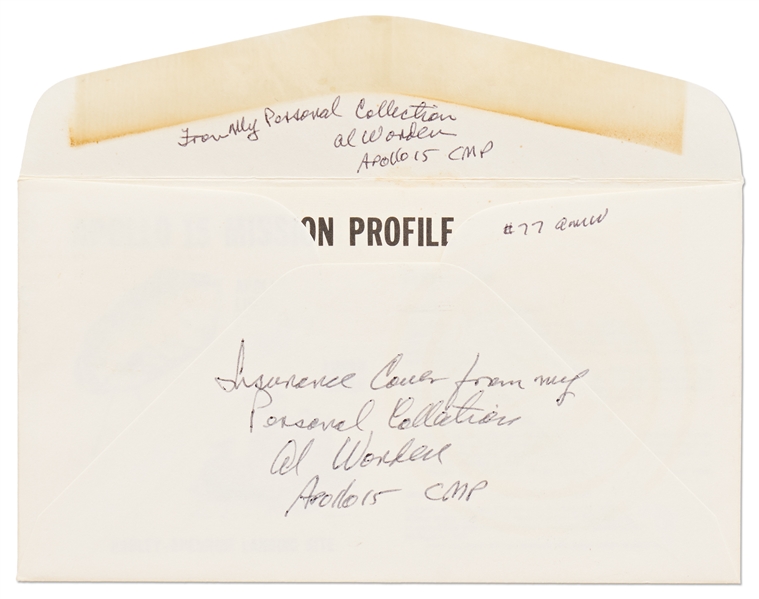 From My Personal Collection
Al Worden
Apollo 15 CMP
ON PROFILE
#77 AMW
Insurance Cover from my
Personal Collection
Al Worden
Apollo 15 CMP